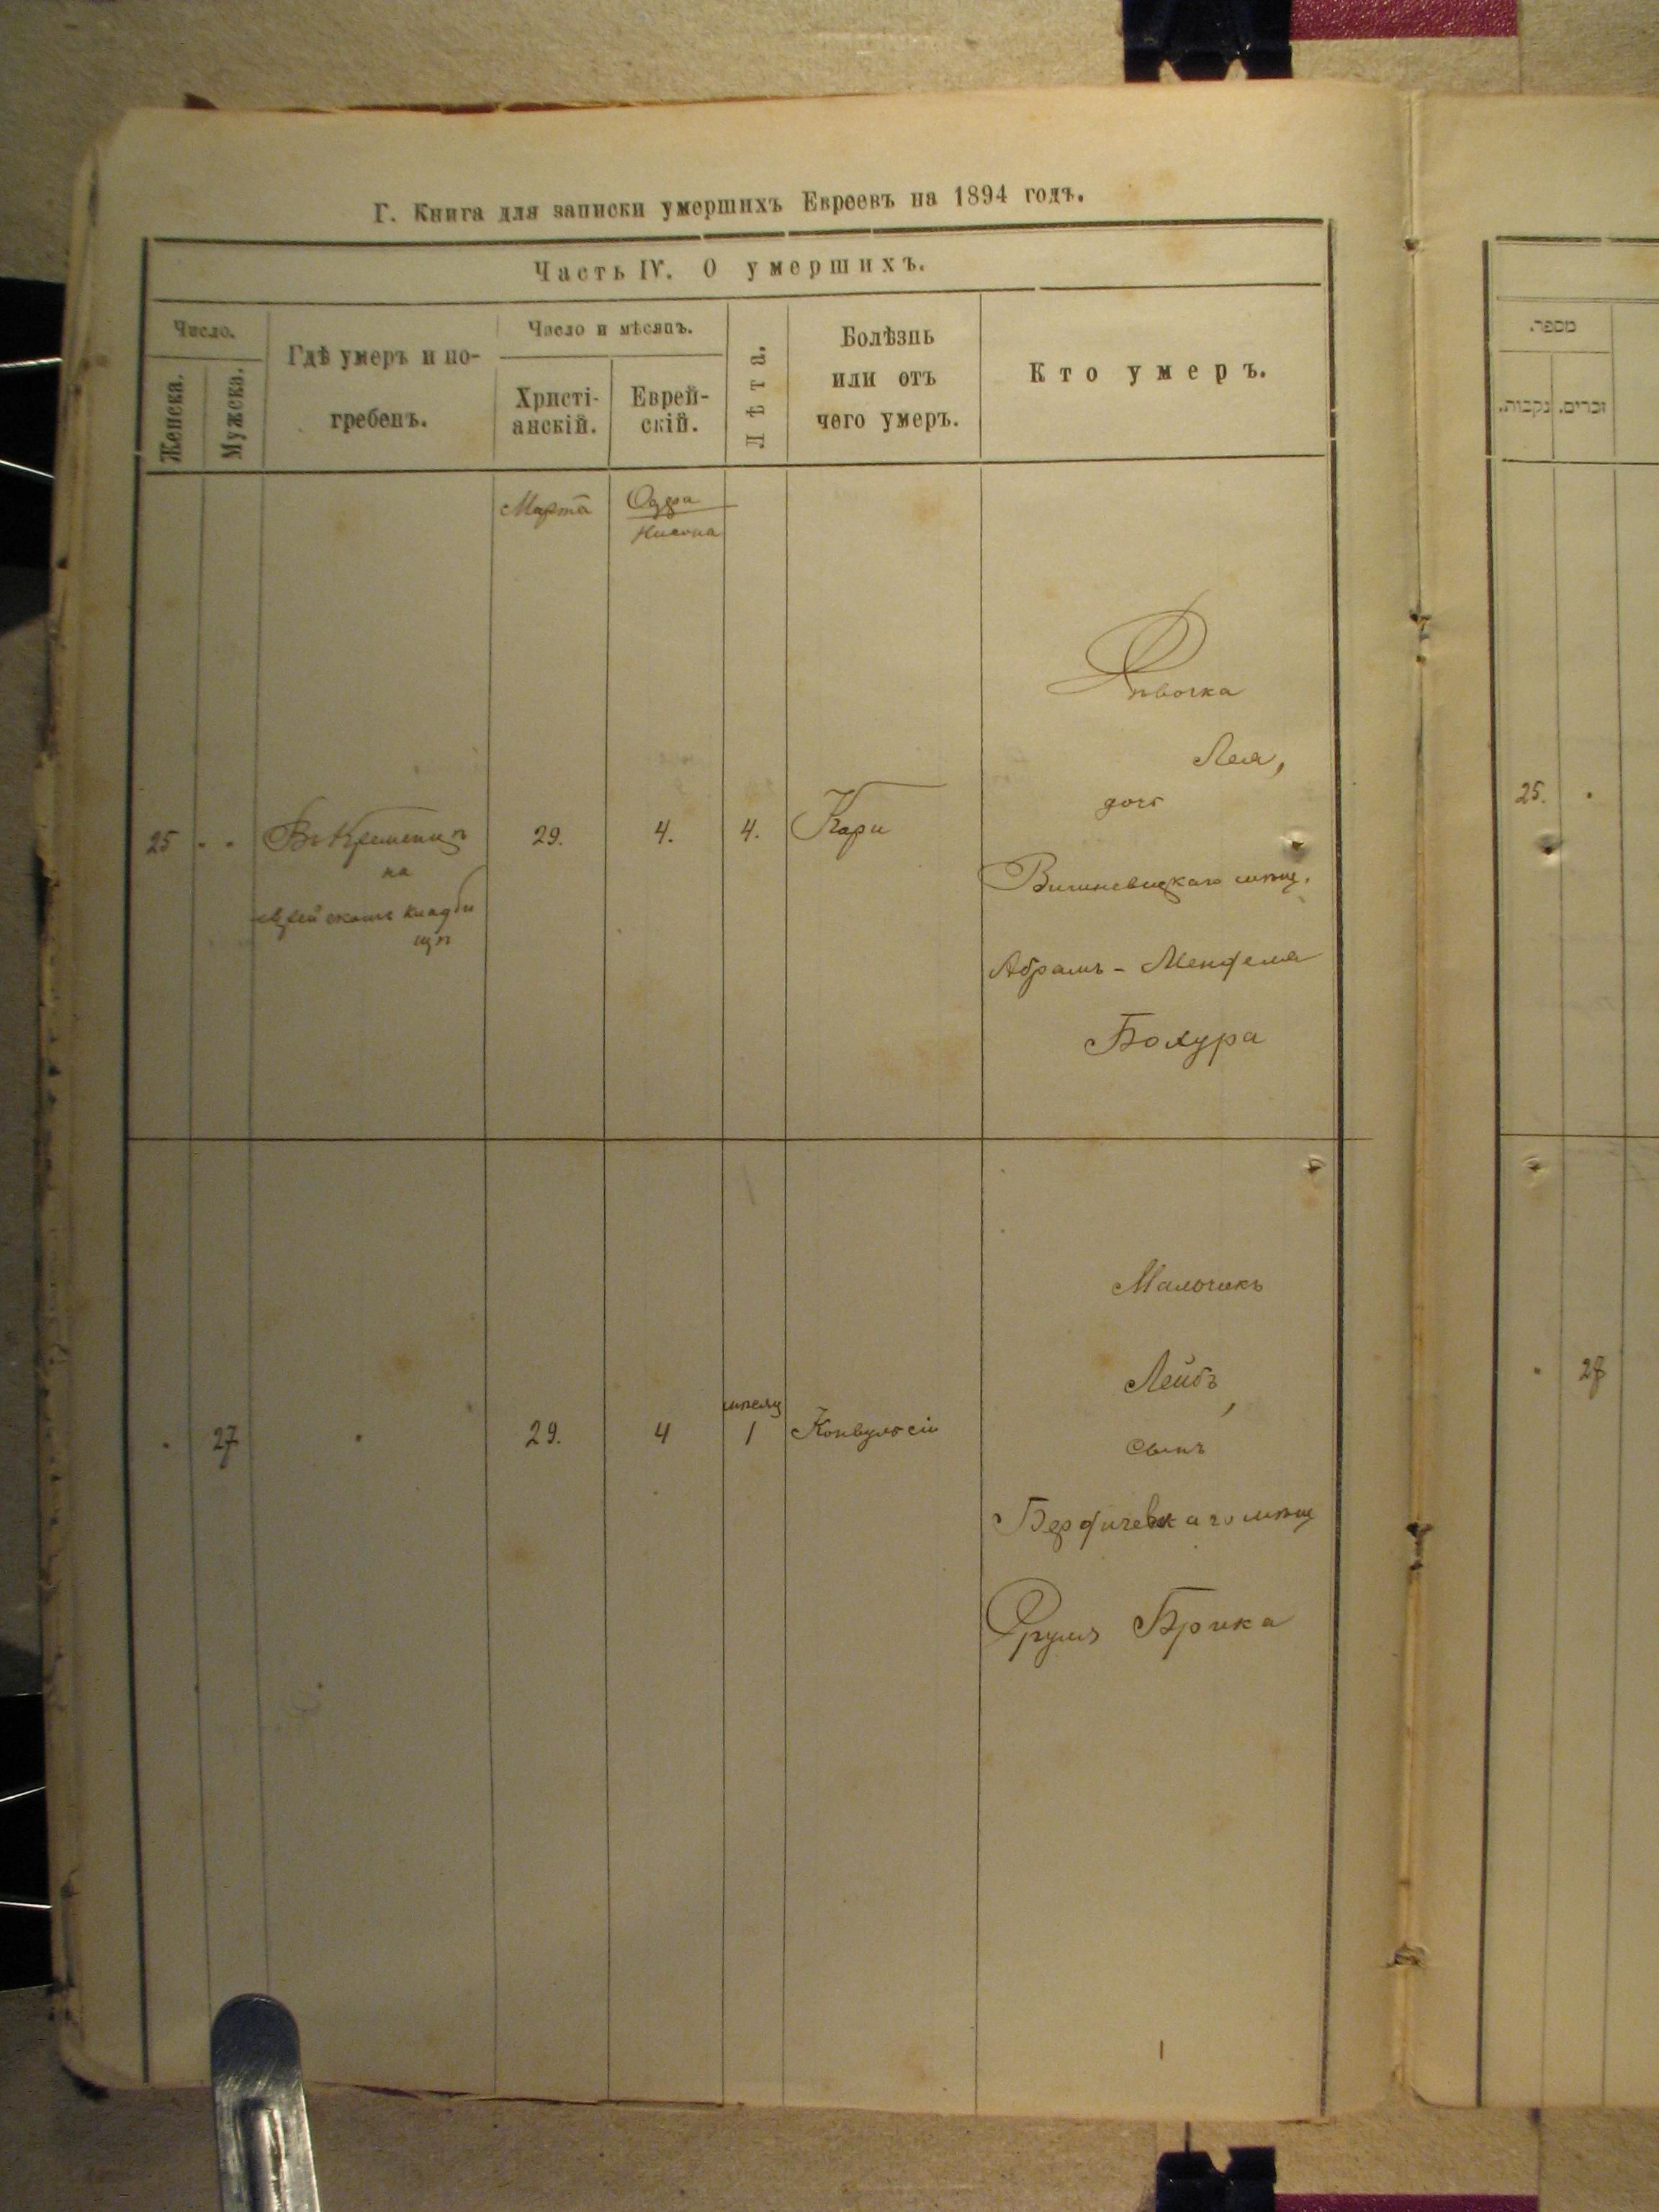 Г. Книга для записки умершихъ Евреевъ на 1894 годъ.
Часть IV. О умершихъ.
Число.
Женска.
Мужска.
Гдѣ умеръ и по-
гребенъ.
Число и мѣсяцъ.
Христі-
анскій.
Еврей-
скій.
Лѣта.
Болѣзнь
или отъ
чего умеръ.
Кто умеръ.
Марта
Нисона
25
Въ Кременцѣ
на
еврейскомъ кладби
щѣ
29.
4.
4.
Кори
Дѣвочка
Лея,
дочь
Вишневецкаго мѣщ.
Абрамъ-Менделя
Бохура
27
29.
4
мѣсяц
1
Конвульсіи
Мальчикъ
Лейбъ,
сынъ
Бердичевскаго мѣщ
Фруля Брика
מספר.
נקבות.
זכרים.
25.
27